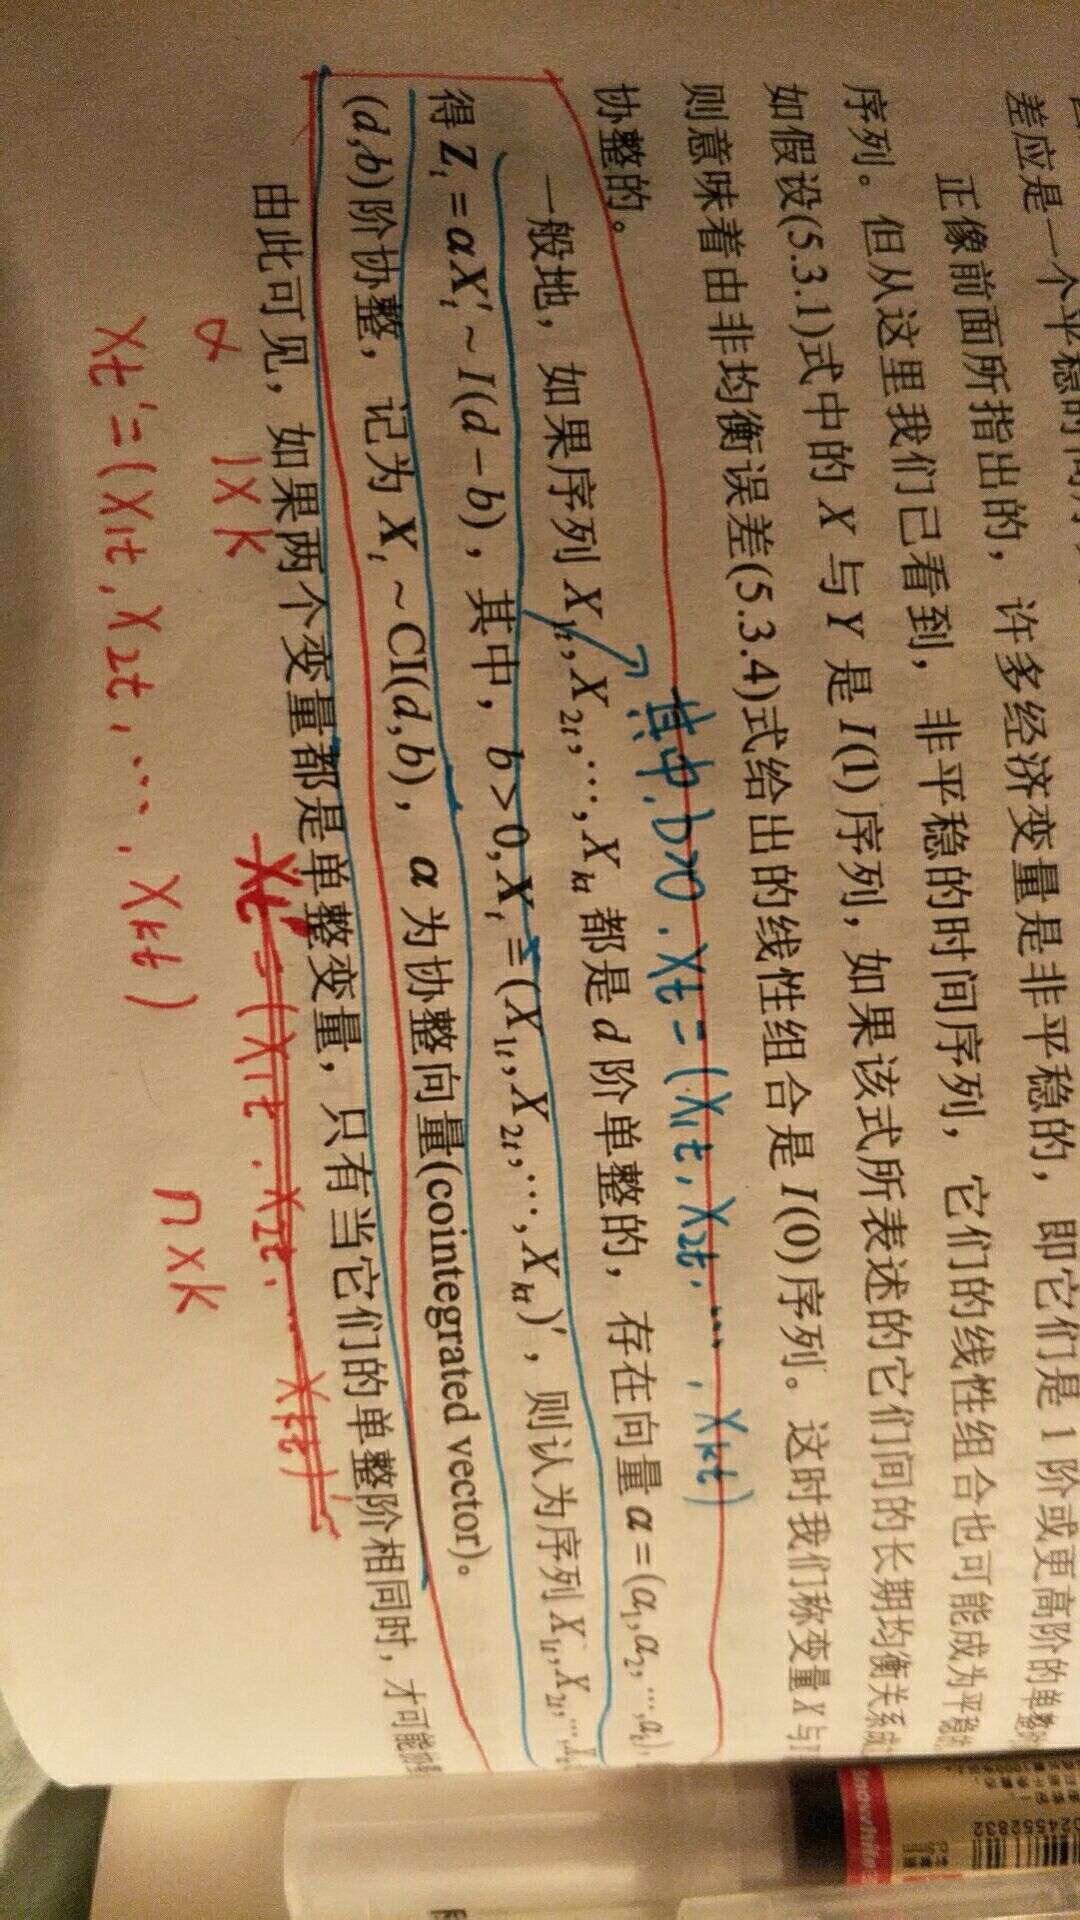 差应是一个平稳时间序
正像前面所指出的，许多经济变量是非平稳的，即它们是1阶或更高阶的单整
序列。但从这里我们已看到，非平稳的时间序列，它们的线性组合也可能成为平稳
如假设(5.3.1)式中的X与Y是I(1)序列，如果该式所表述的它们间的长期均衡关系成
则意味着由非均衡误差(5.3.4)式给出的线性组合是I(0)序列。这时我们称变量X与
协整的。
其中, b>0. Xt=(X1t, X2t, …, Xkt)
一般地，如果序列X1t,X2t,…,Xkt都是d阶单整的，存在向量α=(α1,α2,…,αk),
得Zt=αXt'~I(d−b)，其中，b>0,Xt=(X1t,X2t,…,Xkt)'，则认为序列X1t,X2t,…,
(d,b)阶协整，记为Xt~CI(d,b)，α为协整向量(cointegrated vector)。
由此可见，如果两个变量都是单整变量，只有当它们的单整阶相同时，才可能
Xt'=(X1t, X2t, … Xkt)'
α 1×k n×k
Xt'=(X1t, X2t, …, Xkt)
snowhite
024552832
0.5mm